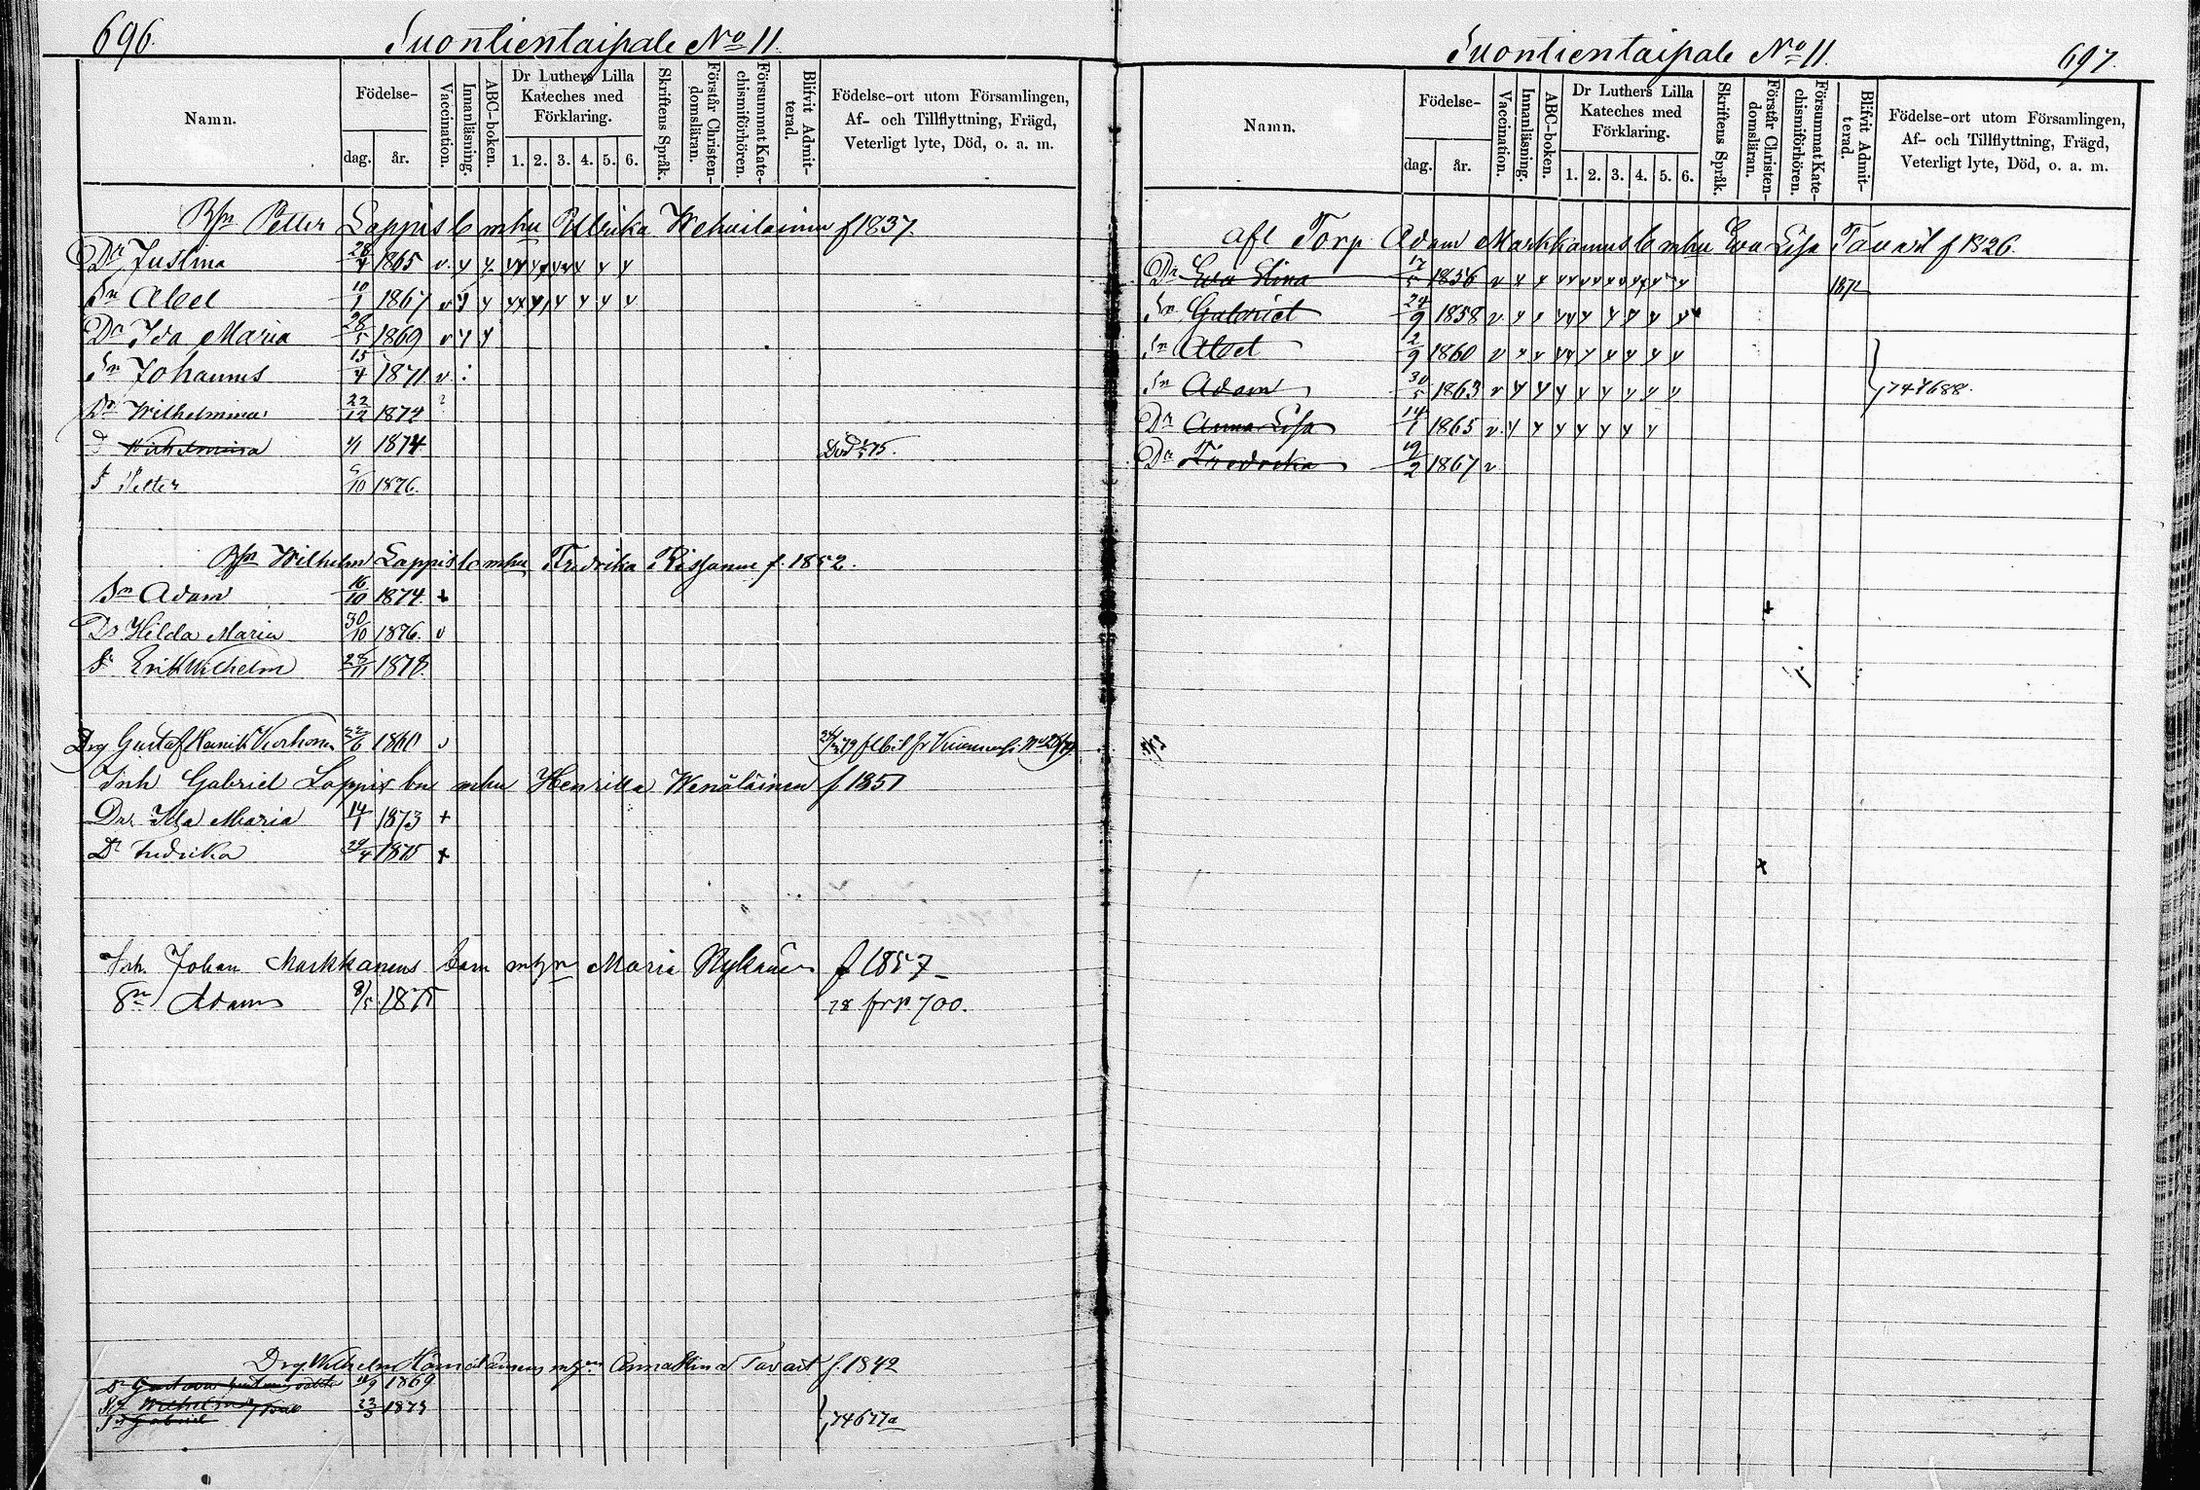 696.
Suontientaipale No 11.
Namn.
Födelse-
dag.
år.
Vaccination.
Innanläsning.
ABC-boken.
Dr Luthers Lilla
Kateches med
Förklaring.
1. 2. 3. 4. 5. 6.
Skriftens Språk.
Förstår Christen-
domsläran.
Försummat Kate-
chismiförhören.
Blifvit Admit-
terad.
Födelse-ort utom Församlingen,
Af- och Tillflyttning, Frägd,
Veterligt lyte, Död, o. a. m.
Petter Lappis b mhu Ulrika f 1837.
Dr Justina 28/4 1865 v
Sn Abel 10/1 1867 v
Dr Ida Maria 28/5 1869 v
Sn Johannes 15/4 1871 v
Dr Wilhelmina 22/12 1874
Wilhelmina 1/1 1874 Död 75.
S Petter /10 1876.
Wilhelm Lappis b mhu Fredrika f. 1852.
Sn Adam 16/10 1874 +
Dr Hilda Maria 30/10 1876. v
Sn Erik Wilhelm 28/11 1878.
Drg Gustaf Henrik Korhonen 22/6 1860 v
Inh Gabriel Lappis bn mhu Henrika Wenäläinen f 1851
Dr. Ida Maria 14/1 1873 +
Dr Fredrika 29/4 1875 +
Inh. Johan Markkanens barn Maria Nykänen f 1857
Sn Adam 8/5 1875 78 frp 700.
Drg Wilhelm Anna Stina Tavast f. 1842
Dr Gustava 1869
Wilhelmina 23/3 1873
Sn Gabriel 74 677a
Suontientaipale No 11.
697.
Namn.
Födelse-
dag.
år.
Vaccination.
Innanläsning.
ABC-boken.
Dr Luthers Lilla
Kateches med
Förklaring.
1. 2. 3. 4. 5. 6.
Skriftens Språk.
Förstår Christen-
domsläran.
Försummat Kate-
chismiförhören.
Blifvit Admit-
terad.
Födelse-ort utom Församlingen,
Af- och Tillflyttning, Frägd,
Veterligt lyte, Död, o. a. m.
afl Torp Adam Markkanens b mhu Eva Lisa f 1826.
Dr Eva Stina 17/5 1856 v 1872
Sn Gabriel 24/9 1858 v
Sn Abel 12/9 1860 v
Sn Adam 30/5 1863 v 74 688.
Dr Anna Lisa 14/1 1865 v
Dr Fredrika 19/2 1867 v